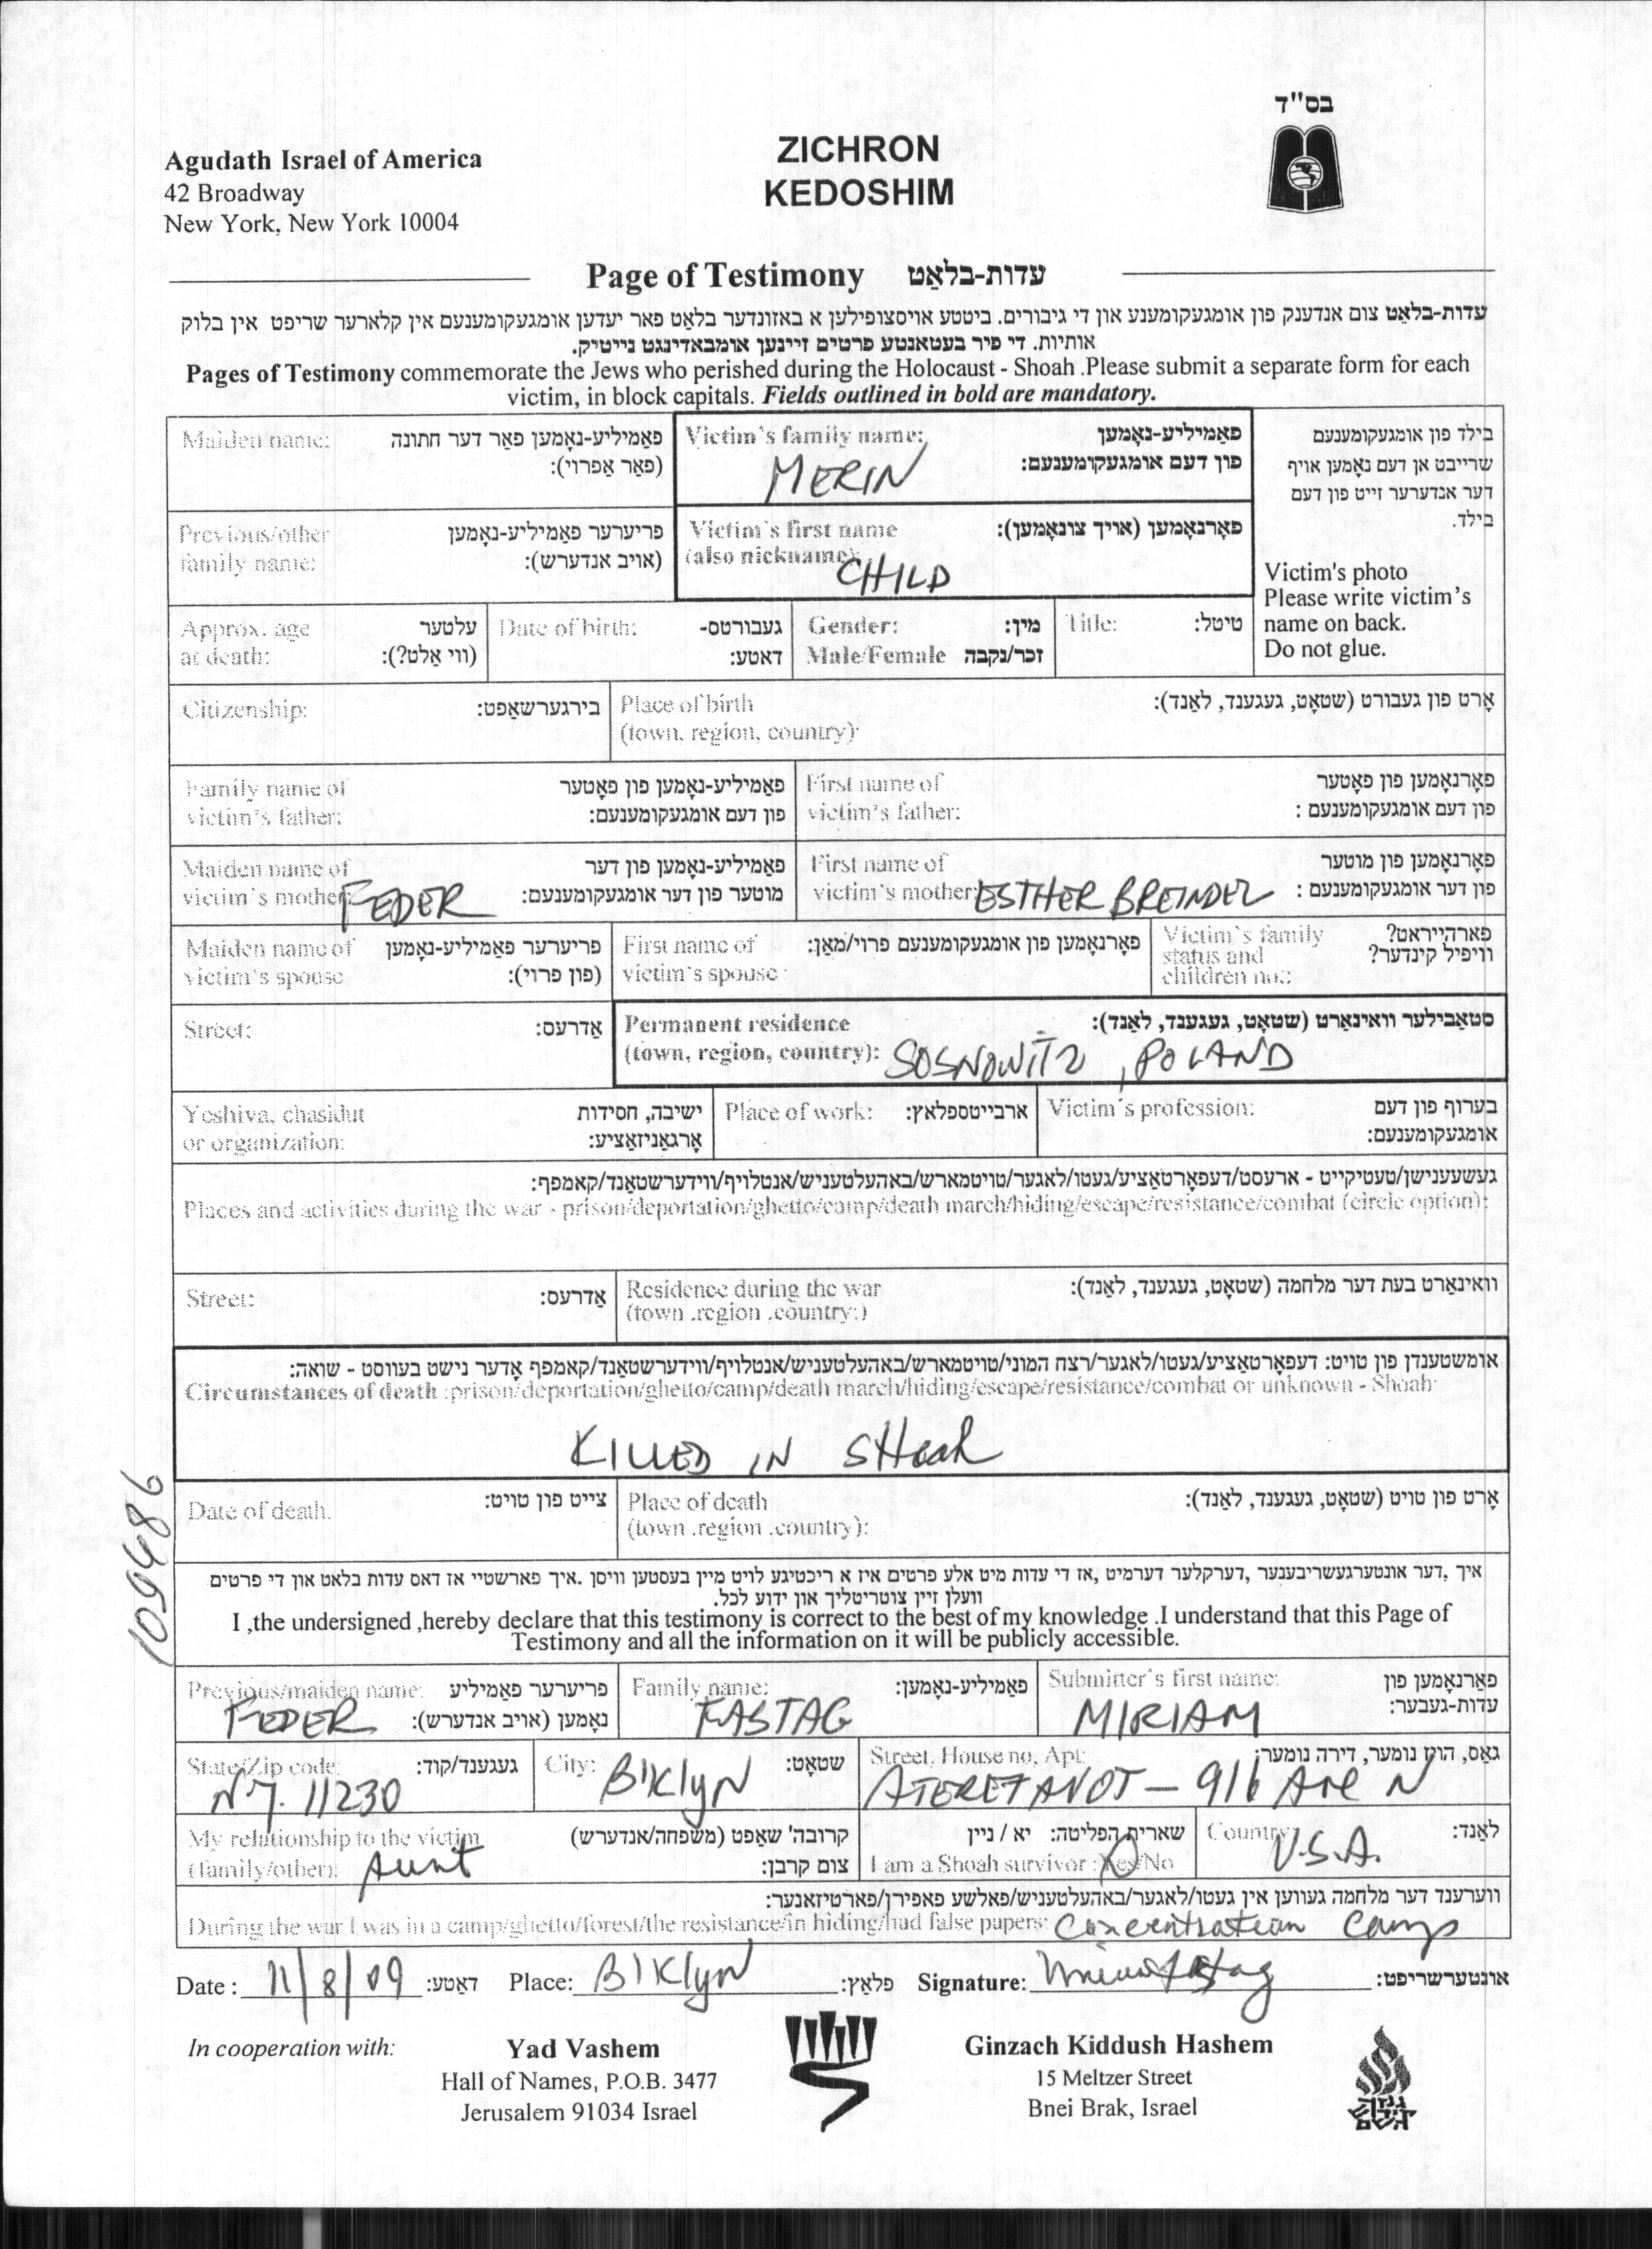 בס"ד
Agudath Israel of America
42 Broadway
New York, New York 10004
ZICHRON
KEDOSHIM
Page of Testimony עדות-בלאַט
עדות-בלאַט צום אנדענק פון אומגעקומענע און די גיבורים. ביטטע אויסצופילען א באזונדער בלאַט פאר יעדען אומגעקומענעם אין קלארער שריפט אין בלוק
אותיות. די פיר בעטאנטע פרטים זיינען אומבאדינגט נייטיק.
Pages of Testimony commemorate the Jews who perished during the Holocaust - Shoah .Please submit a separate form for each
victim, in block capitals. Fields outlined in bold are mandatory.
Maiden name: פאַמיליע-נאָמען פאַר דער חתונה
(פאַר אַפרוי):
Victim's family name: פאַמיליע-נאָמען
פון דעם אומגעקומענעם:
MERIN
בילד פון אומגעקומענעם
שרייבט אן דעם נאָמען אויף
דער אנדערער זייט פון דעם
בילד.
Previous/other פריערער פאַמיליע-נאָמען
family name: (אויב אנדערש):
Victim's first name פאָרנאָמען (אויך צונאָמען):
(also nickname):
CHILD
Victim's photo
Please write victim's
name on back.
Do not glue.
Approx. age עלטער
at death: (ווי אַלט?):
Date of birth: געבורטס-
דאטע:
Gender: מין:
Male/Female זכר/נקבה
Title: טיטל:
Citizenship: בירגערשאַפט:
Place of birth אָרט פון געבורט (שטאָט, געגענד, לאַנד):
(town, region, country):
Family name of פאַמיליע-נאָמען פון פאָטער
victim's father: פון דעם אומגעקומענעם:
First name of פאָרנאָמען פון פאָטער
victim's father: פון דעם אומגעקומענעם :
Maiden name of פאַמיליע-נאָמען פון דער
victim's mother: FEDER מוטער פון דער אומגעקומענעם:
First name of פאָרנאָמען פון מוטער
victim's mother: ESTHER BREINDEL פון דער אומגעקומענעם :
Maiden name of פריערער פאַמיליע-נאָמען
victim's spouse (פון פרוי):
First name of פאָרנאָמען פון אומגעקומענעם פרוי/מאַן:
victim's spouse :
Victim's family פארהייראט?
status and וויפיל קינדער?
children no.:
Street: אַדרעס:
Permanent residence סטאַבילער וואינאָרט (שטאָט, געגענד, לאַנד):
(town, region, country): SOSNOWITZ, POLAND
Yeshiva, chasidut ישיבה, חסידות
or organization: אָרגאַניזאַציע:
Place of work: ארבייטספלאץ:
Victim's profession: בערוף פון דעם
אומגעקומענעם:
געשעענישן/טעטיקייט - ארעסט/דעפאָרטאַציע/געטו/לאגער/טויטמארש/באהעלטעניש/אנטלויף/ווידערשטאַנד/קאמפף:
Places and activities during the war - prison/deportation/ghetto/camp/death march/hiding/escape/resistance/combat (circle option):
Street: אַדרעס:
Residence during the war וואינאָרט בעת דער מלחמה (שטאָט, געגענד, לאַנד):
(town .region .country:)
אומשטענדן פון טויט: דעפאָרטאַציע/געטו/לאגער/רצח המוני/טויטמארש/באהעלטעניש/אנטלויף/ווידערשטאַנד/קאמפף אָדער נישט בעווסט - שואה:
Circumstances of death :prison/deportation/ghetto/camp/death march/hiding/escape/resistance/combat or unknown - Shoah:
KILLED IN SHoah
Date of death. צייט פון טויט:
Place of death אָרט פון טויט (שטאָט, געגענד, לאַנד):
(town .region .country):
109486
איך ,דער אונטערגעשריבענער ,דערקלער דערמיט ,אז די עדות מיט אלע פרטים איז א ריכטיגע לויט מיין בעסטען וויסן .איך פארשטיי אז דאס עדות בלאט און די פרטים
וועלן זיין צוטריטליך און ידוע לכל.
I ,the undersigned ,hereby declare that this testimony is correct to the best of my knowledge .I understand that this Page of
Testimony and all the information on it will be publicly accessible.
Previous/maiden name: פריערער פאַמיליע
FEDER נאָמען (אויב אנדערש):
Family name: פאַמיליע-נאָמען:
FASTAG
Submitter's first name: פאָרנאָמען פון
עדות-געבער:
MIRIAM
State/Zip code: געגענד/קוד:
N.Y. 11230
City: שטאָט:
B'Klyn
Street, House no, Apt: גאַס, הויז נומער, דירה נומער:
ATERET AVOT - 916 Ave N
My relationship to the victim קרובה' שאַפט (משפחה/אנדערש)
(family/other): Aunt צום קרבן:
שארית הפליטה: יא / ניין
I am a Shoah survivor :Yes/No
Country: לאַנד:
U.S.A.
ווערענד דער מלחמה געווען אין געטו/לאגער/באהעלטעניש/פאלשע פאפירן/פארטיזאנער:
During the war I was in a camp/ghetto/forest/the resistance/in hiding/had false papers: Concentration Camp
Date : 11/8/09 דאטע: Place: B'Klyn פלאַץ: Signature: אונטערשריפט:
In cooperation with:
Yad Vashem
Hall of Names, P.O.B. 3477
Jerusalem 91034 Israel
Ginzach Kiddush Hashem
15 Meltzer Street
Bnei Brak, Israel